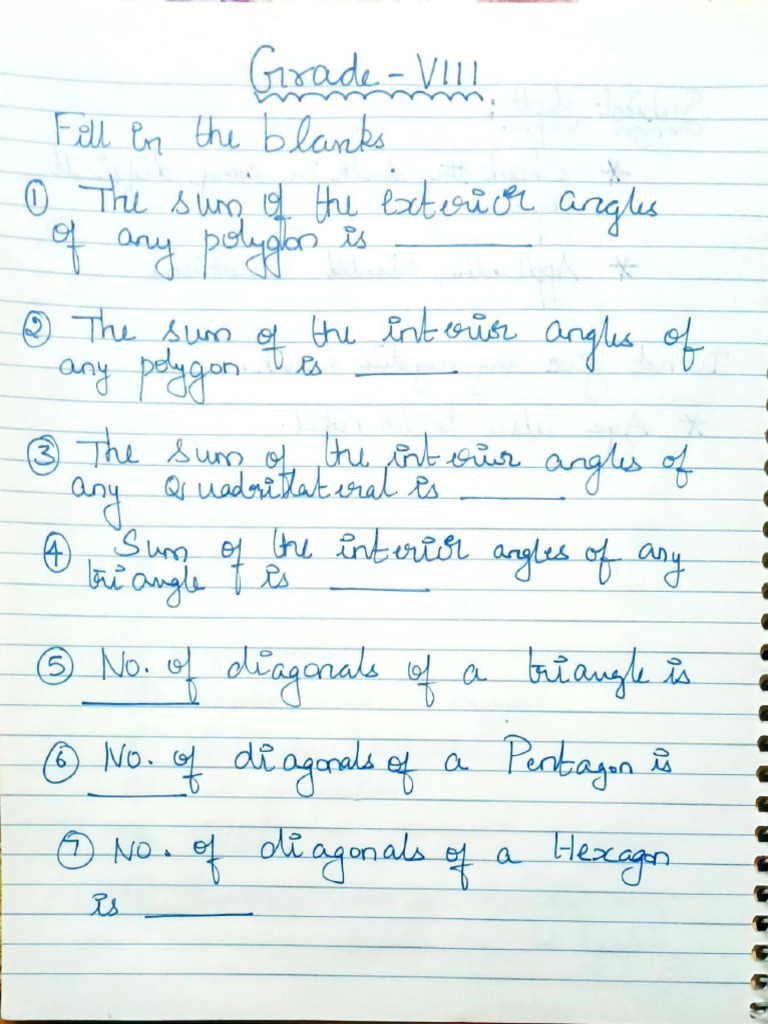 Grade - VIII
Fill in the blanks
① The sum of the exterior angles
of any polygon is ______
② The sum of the interior angles of
any polygon is ______
③ The sum of the interior angles of
any Quadrilateral is ______
④ Sum of the interior angles of any
triangle is ______
⑤ No. of diagonals of a triangle is
______
⑥ No. of diagonals of a Pentagon is
______
⑦ No. of diagonals of a Hexagon
is ______